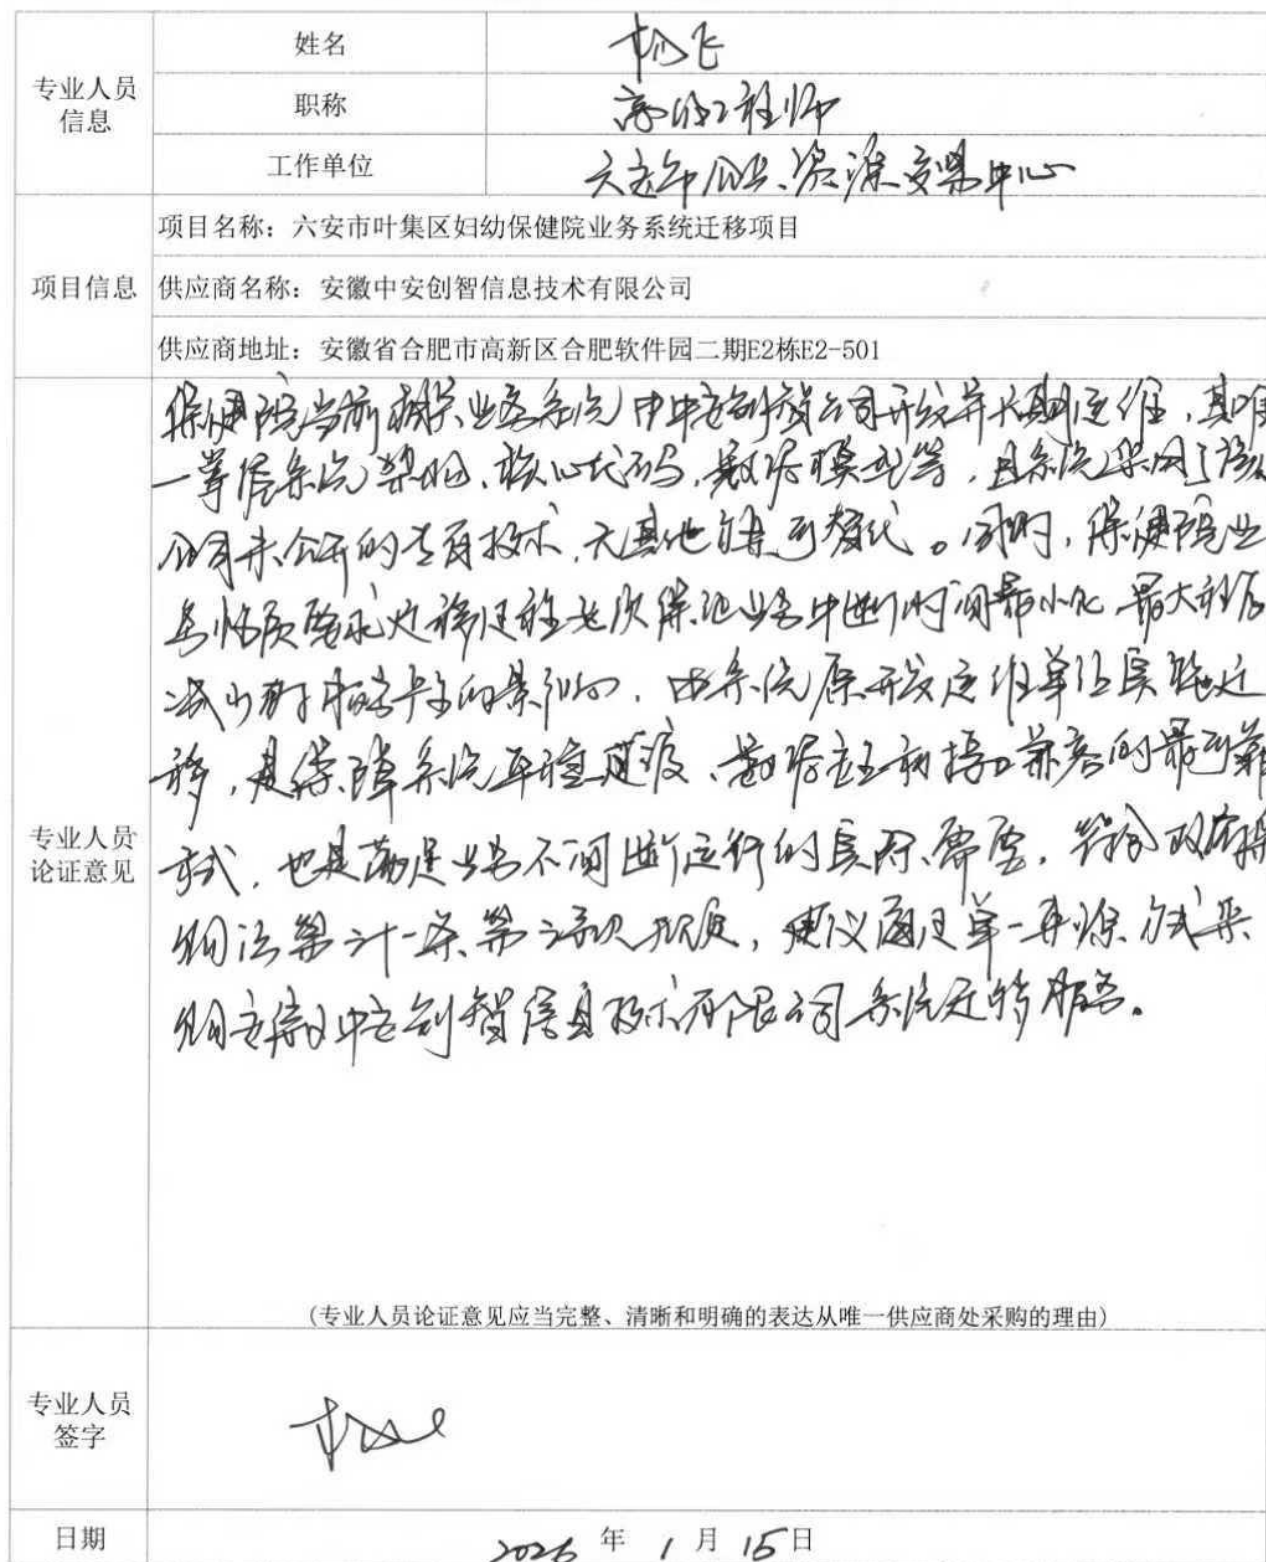 专业人员
信息
姓名
杨飞
职称
高级工程师
工作单位
六安市公共资源交易中心
项目信息
项目名称：六安市叶集区妇幼保健院业务系统迁移项目
供应商名称：安徽中安创智信息技术有限公司
供应商地址：安徽省合肥市高新区合肥软件园二期E2栋E2-501
专业人员
论证意见
保健院当前相关业务系统由中安创智公司开发并长期运维，其唯
一掌握系统架构、核心代码、数据模型等，且系统采用了该
公司未公开的专有技术，无其他可替代。同时，保健院业
务性质要求迁移过程必须保证业务中断时间最小化，最大程度
减少对的影响，由系统原开发运维单位实施迁
移，是保障系统平稳过渡、数据完整和接口兼容的最可靠
方式，也是满足业务不间断运行的实际需要，符合政府采
购法第三十一条第一款规定，建议通过单一来源方式采
购安徽中安创智信息技术有限公司系统迁移服务。
(专业人员论证意见应当完整、清晰和明确的表达从唯一供应商处采购的理由)
专业人员
签字
杨飞
日期
2026 年 1 月 15 日